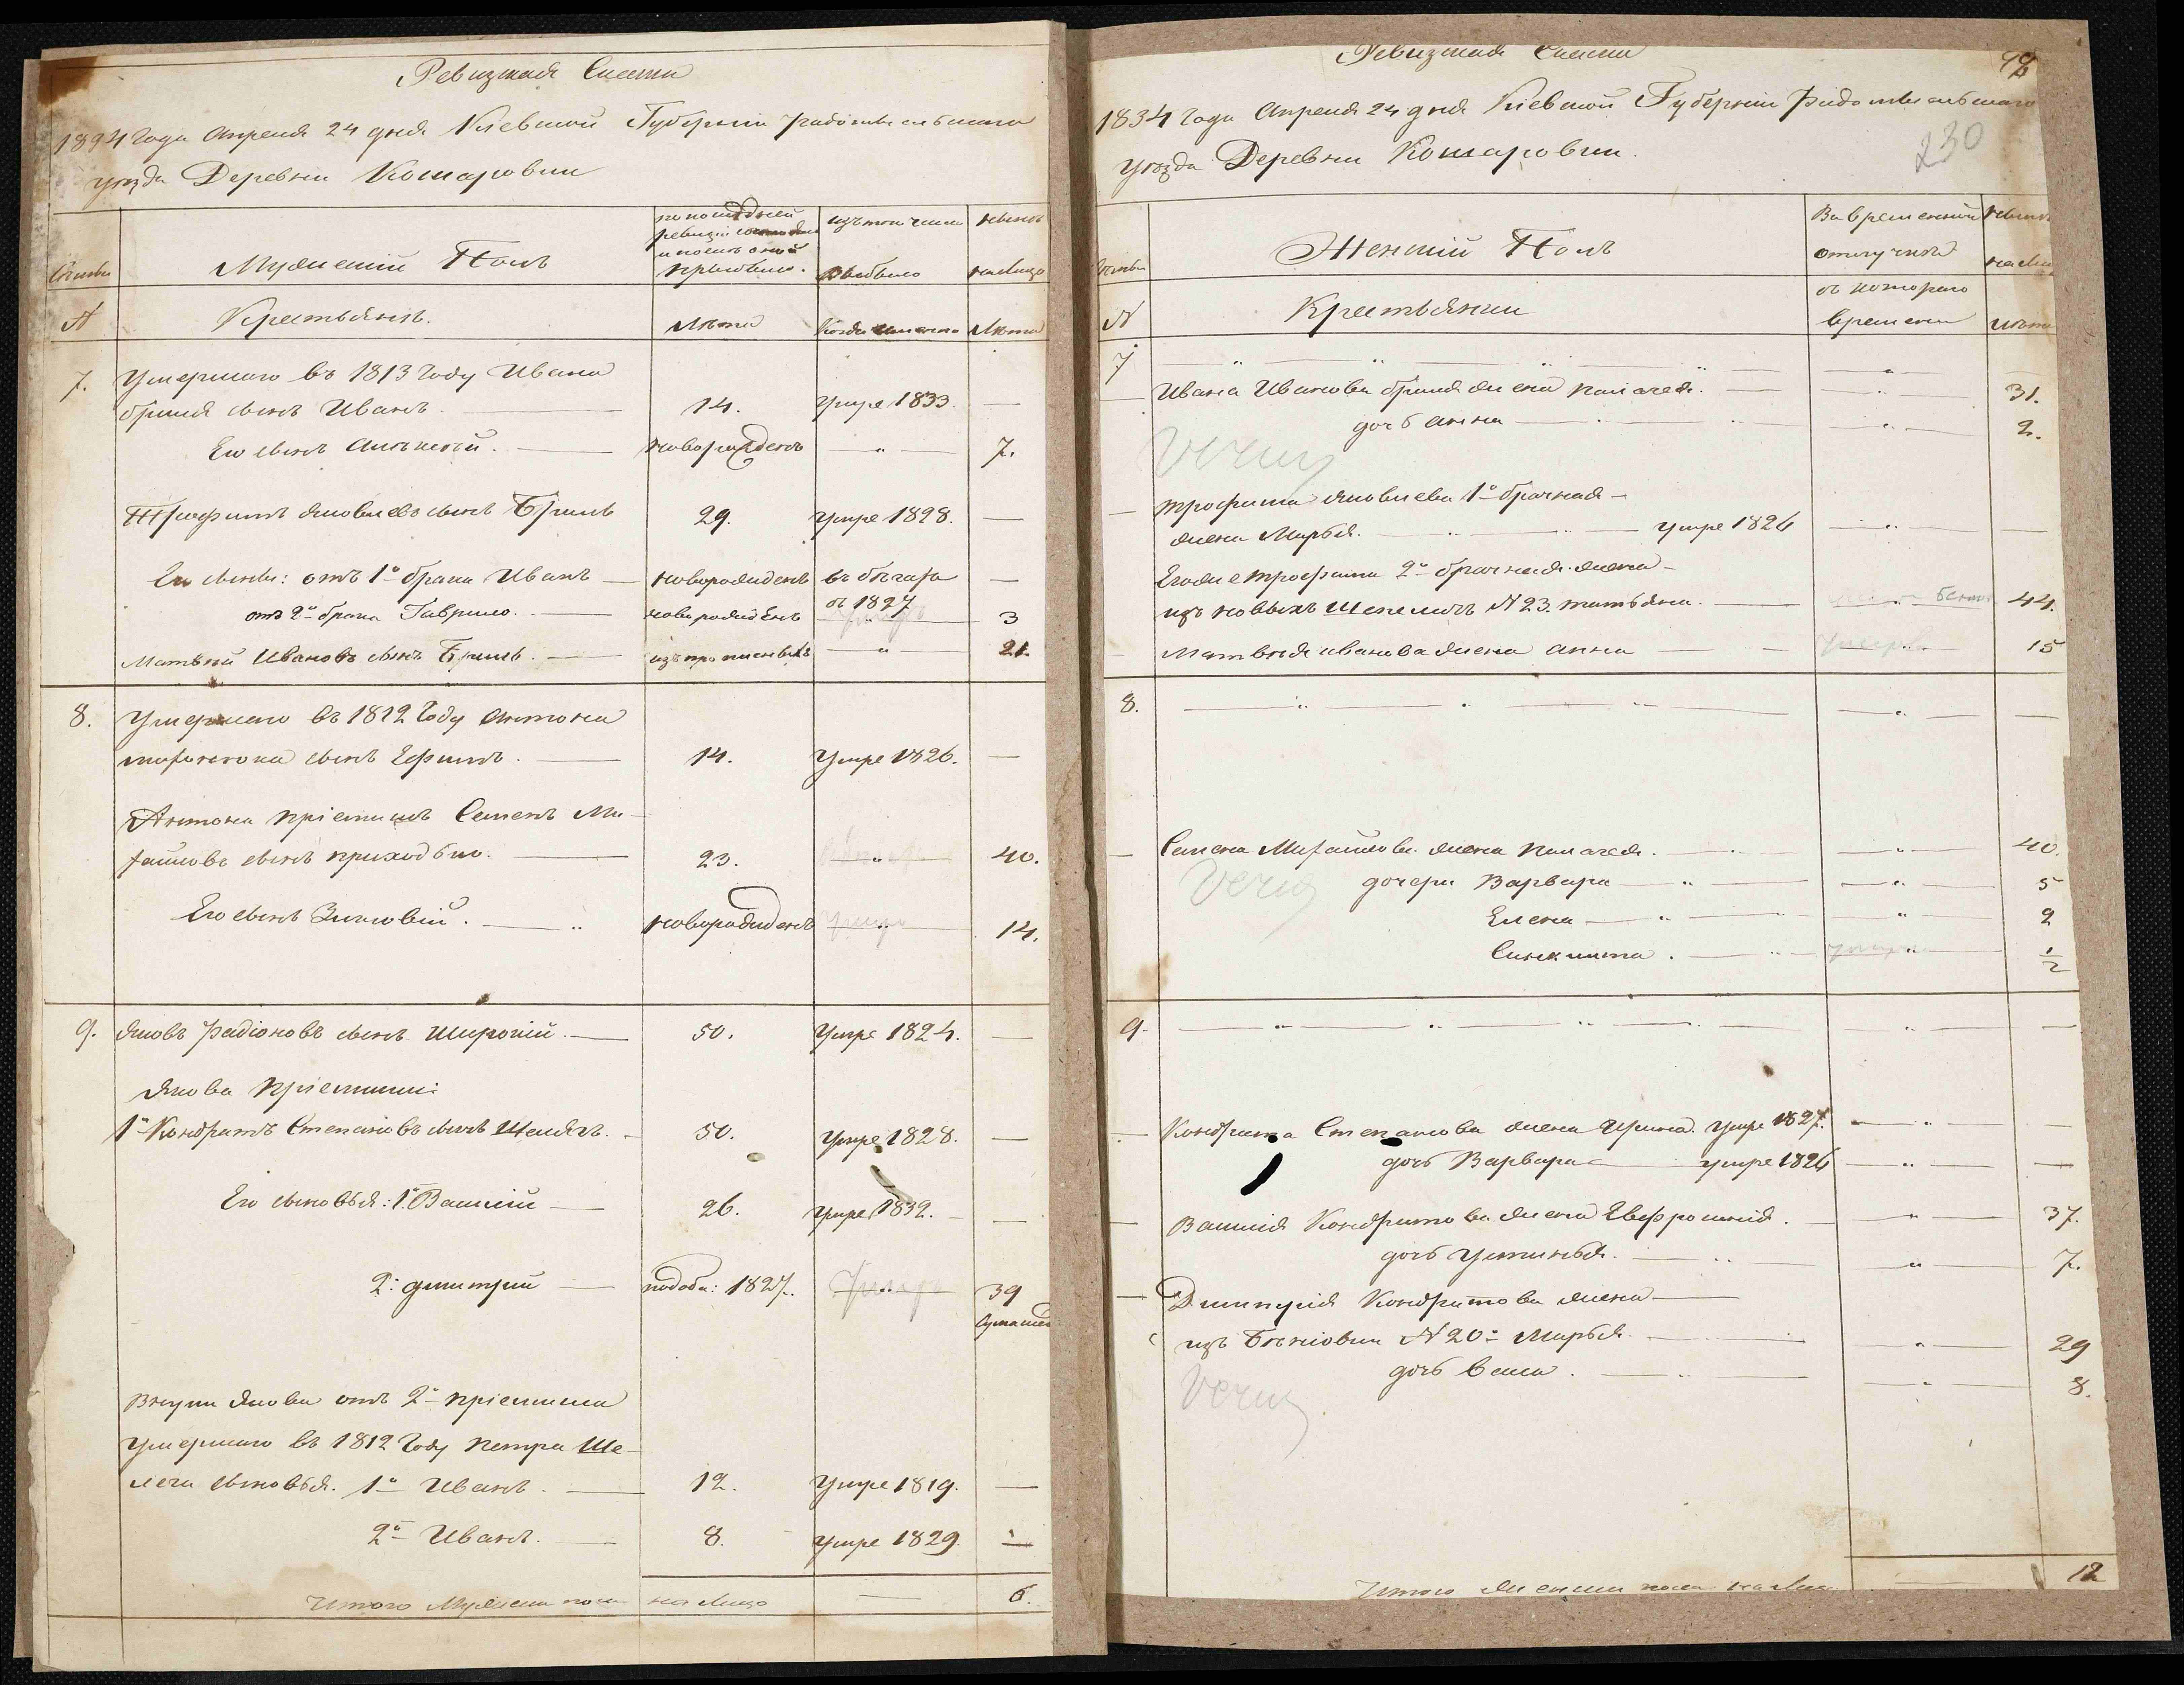 Ревизкая Сказка
1834 Года Апреля 24 дня Кіевской Губерніи Радомысльскаго
уѣзда Деревни Комаровки
Семьи
Мужескій Полъ
по последней
ревизіи состояло
и после оной
прыбыло.
изъ того числа
выбыло
ныне
налицо
№
Крестьянѣ.
Лѣта
Когда именно
Лѣта
7. Умершаго въ 1813 Году Ивана
бриля сынъ Иванъ. 14. Умре 1833. —
Его сынъ Алѣксѣй. новорожденъ — " — 7.
Трофимъ Яковлевъ сынъ Бриль 29. Умре 1828. —
Его сыны: отъ 1го брака Иванъ — новорожденъ въ бѣгахъ —
отъ 2го брака Гаврило. — новорожденъ съ 1827 3
Матвѣй Ивановъ сынъ Бриль. — изъ прописныхъ — " — 21.
8. Умершаго въ 1812 Году Антона
сынъ Ефимъ. — 14. Умре 1826. —
Антона пріемышъ Семенъ Ми-
хайловъ сынъ приходько. 23. " 40.
Его сынъ Зиновій. — новорожденъ умеръ 14.
9. Яковъ Радіоновъ сынъ Широкій. — 50. Умре 1824. —
Якова пріемыши:
1й Кондратъ Степановъ сынъ Шелягъ. 50. Умре 1828. —
Его сыновья: 1й Василій — 26. Умре 1832. —
2: дмитрій — подобн: 1827. умеръ 39
Внуки Якова отъ 2го пріемыша
умершаго въ 1812 Году петра Ше-
леги сыновья. 1й Иванъ. — 12. Умре 1819. —
2й Иванъ. — 8. Умре 1829. —
Итого Мужеска пола налицо — 6.
Ревизкая Сказка
230
1834 Года Апреля 24 дня Кіевской Губерніи Радомысльскаго
уѣзда Деревни Комаровки.
Семьи
Женскій Полъ
Во временной
отлучкѣ
ныне
№
Крестьянки
съ котораго
времени
Лѣта
7
Ивана Иванова бриля жена палагея. — 31.
дочь анна — 2.
Трофима Яковлева 1о брачная —
жена Марья. — умре 1826 — " —
Егоже трофима 2о брачная жена —
изъ новыхъ Шепеличь №23. татьяна. — 44.
Матвея иванова жена анна 15
8.
Семена Михайлова жена палагея. — 40.
дочери Варвара — 5
Елена — 2
Синклита. — 1/2
9.
Кондрата Степанова жена Ирина. умре 1827. —
дочь Варвара — умре 1826 —
Василія Кондратова жена Евфросинія. — 37.
дочь Устинья. — 7.
Дмитрія Кондратова жена —
изъ №20: Марья. — 29
дочь — 8.
Итого женска пола налицо 12